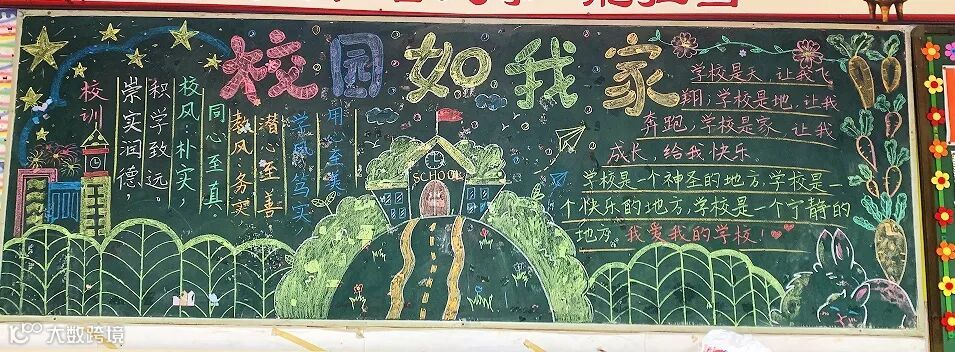 校园如我家
校训
崇实润德,
积学致远。
校风:朴实,
同心至真
教风:务实
潜心至善
学风:笃实,
用心至美
SCHOOL
学校是天,让我飞
翔;学校是地,让我
奔跑,学校是家,让我
成长,给我快乐。
学校是一个神圣的地方,学校是一
个快乐的地方,学校是一个宁静的
地方,我爱我的学校!
大数跨境